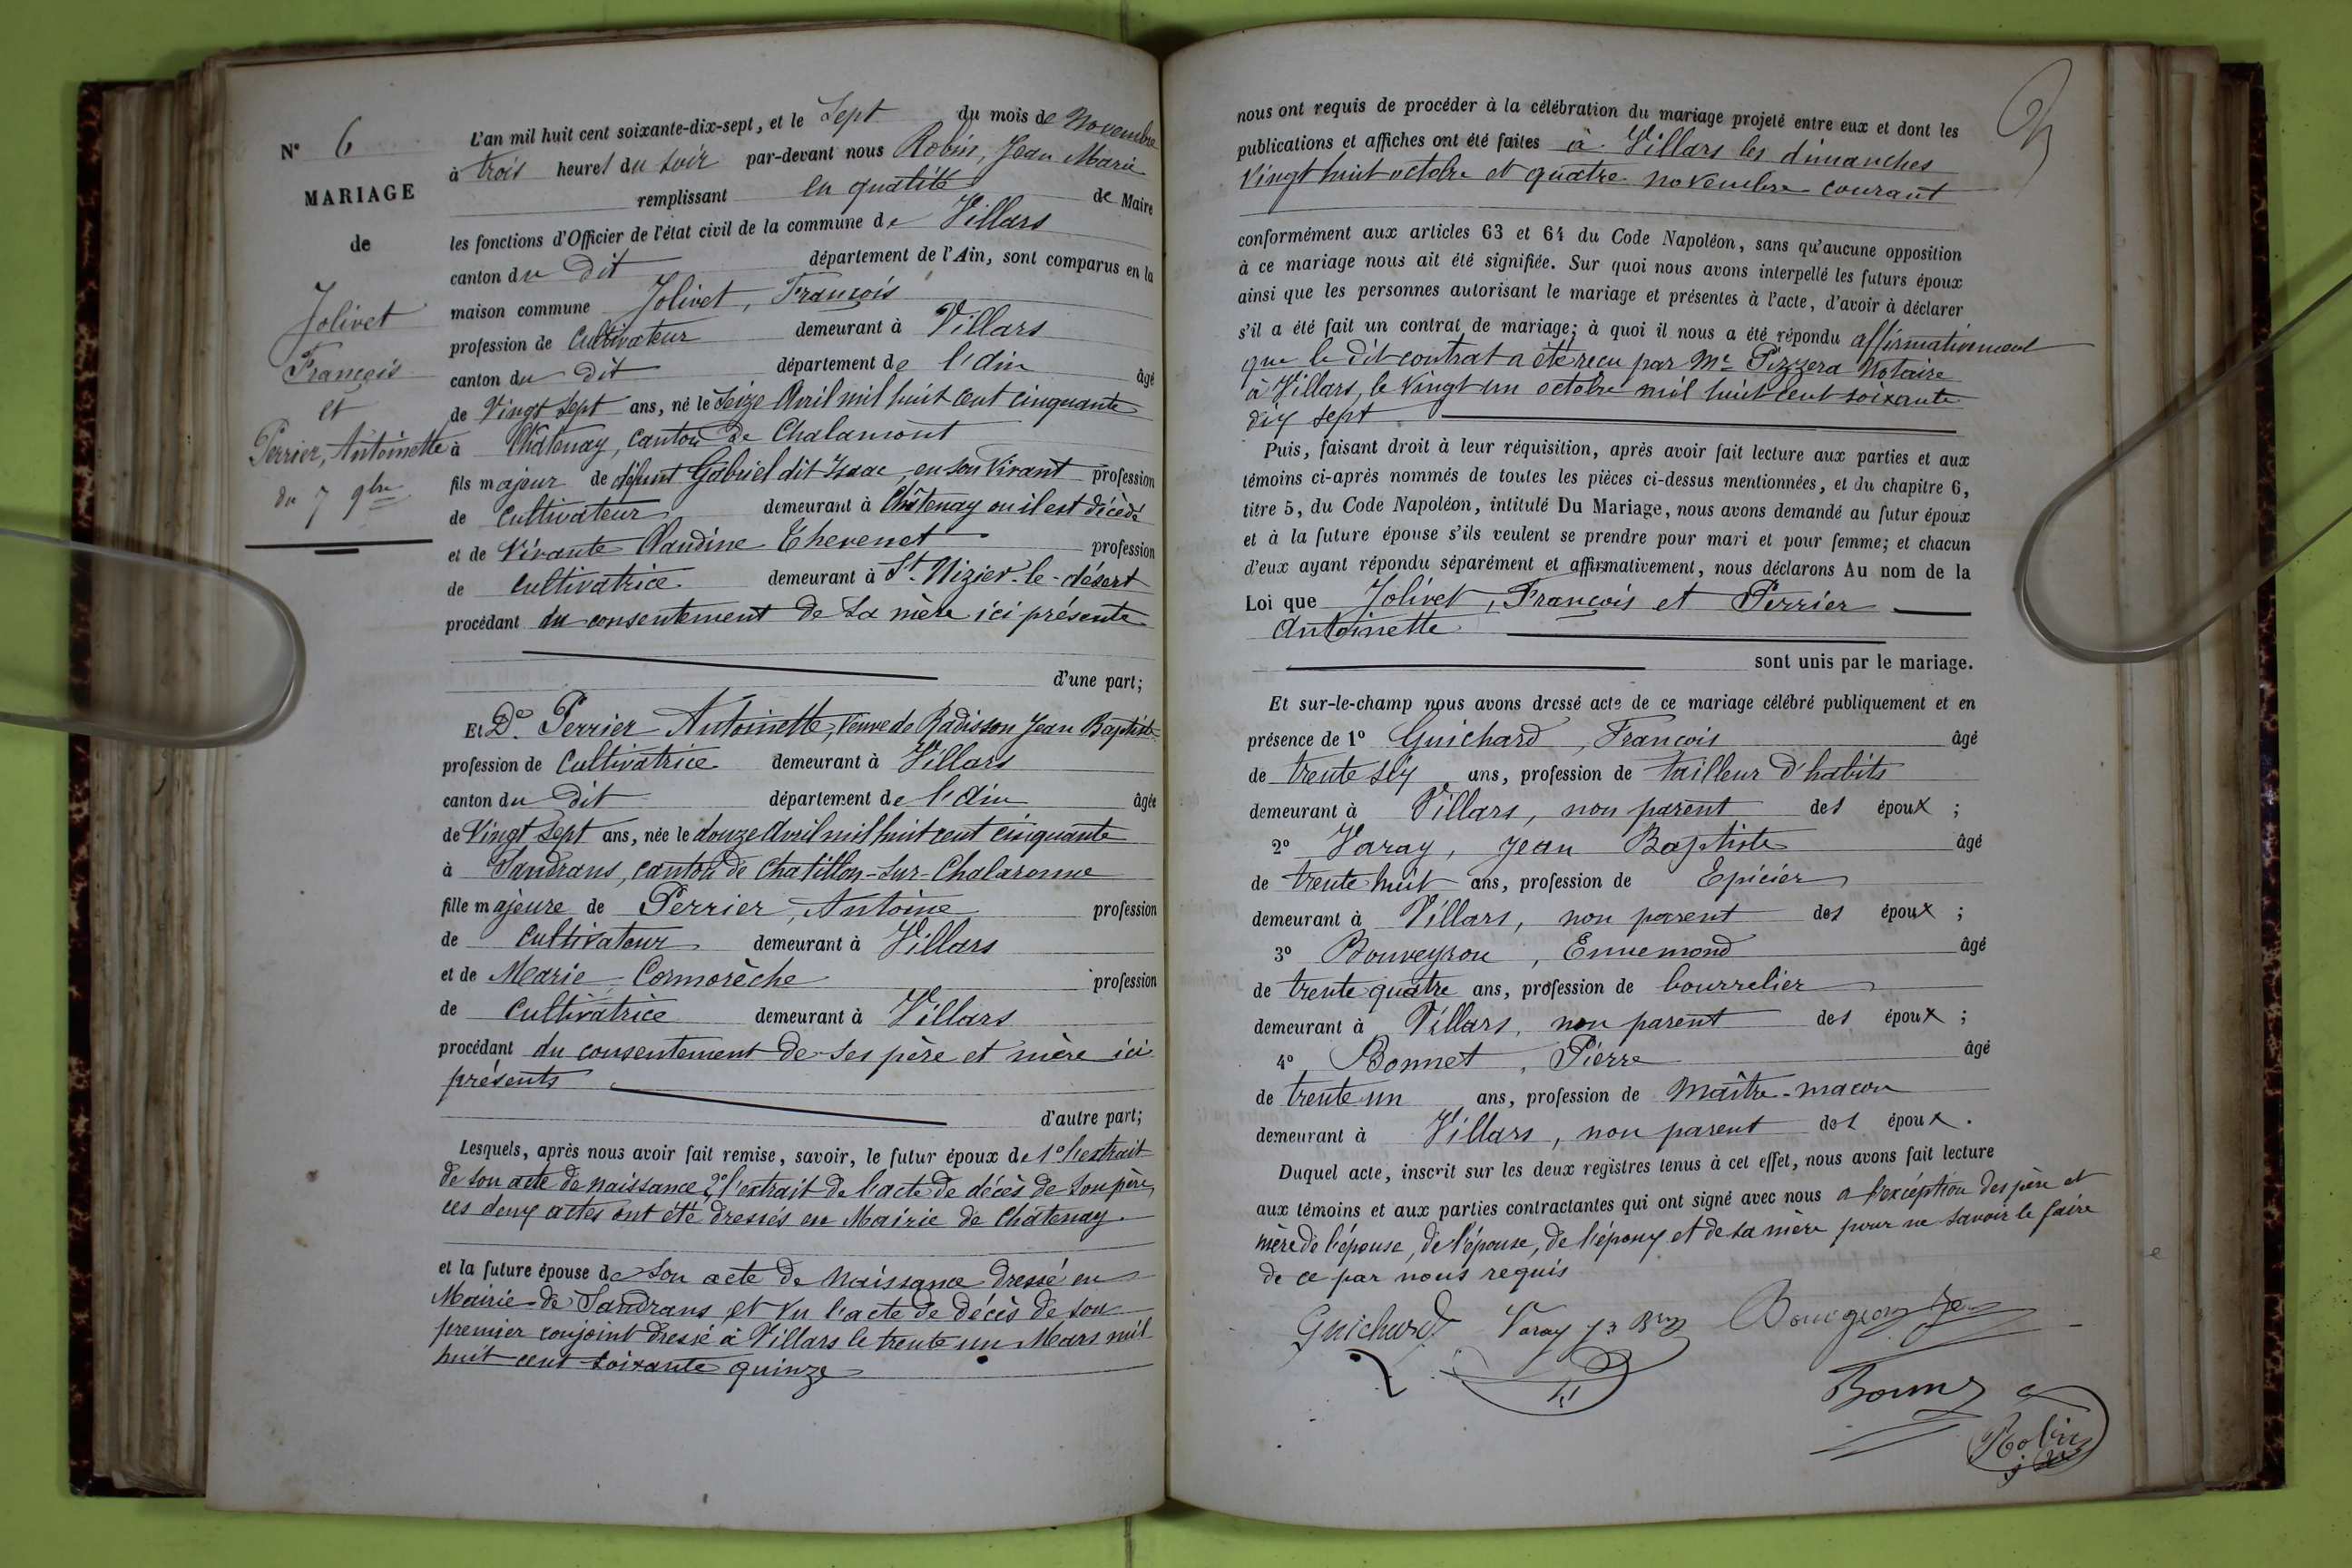 N° 6
MARIAGE
de
Jolivet
François
et
Perrier, Antoinette
du 7 9bre
L'an mil huit cent soixante-dix-sept, et le Sept du mois de Novembre
à trois heures du soir par-devant nous Robin, Jean Marie
remplissant en qualité de Maire
les fonctions d'Officier de l'état civil de la commune de Villars
canton du dit département de l'Ain, sont comparus en la
maison commune Jolivet, François
profession de Cultivateur demeurant à Villars
canton du dit département de l'Ain âgé
de Vingt Sept ans, né le Seize Avril mil huit cent cinquante
à Châtenay, canton de Chalamont
fils majeur de défunt Gabriel dit Isaac, en son vivant profession
de Cultivateur demeurant à Châtenay où il est décédé
et de vivante Claudine Thevenet profession
de Cultivatrice demeurant à St. Nizier-le-désert
procédant du consentement de sa mère ici présente
d'une part;
Et De Perrier Antoinette, veuve de Radisson Jean Baptiste
profession de Cultivatrice demeurant à Villars
canton du dit département de l'Ain âgée
de Vingt Sept ans, née le douze Avril mil huit cent cinquante
à Sandrans, canton de Chatillon-sur-Chalaronne
fille majeure de Perrier, Antoine profession
de Cultivateur demeurant à Villars
et de Marie Cormorèche profession
de Cultivatrice demeurant à Villars
procédant du consentement de ses père et mère ici
présents
d'autre part;
Lesquels, après nous avoir fait remise, savoir, le futur époux de 1° l'extrait
de son acte de naissance 2° l'extrait de l'acte de décès de son père,
ces deux actes ont été dressés en Mairie de Châtenay.
et la future épouse de son acte de Naissance dressé en
Mairie de Sandrans et vu l'acte de décès de son
premier conjoint dressé à Villars le trente un Mars mil
huit cent soixante quinze
nous ont requis de procéder à la célébration du mariage projeté entre eux et dont les
publications et affiches ont été faites à Villars les dimanches
Vingt huit octobre et quatre novembre courant
conformément aux articles 63 et 64 du Code Napoléon, sans qu'aucune opposition
à ce mariage nous ait été signifiée. Sur quoi nous avons interpellé les futurs époux
ainsi que les personnes autorisant le mariage et présentes à l'acte, d'avoir à déclarer
s'il a été fait un contrat de mariage; à quoi il nous a été répondu affirmativement
que le dit contrat a été reçu par Me Pizzera Notaire
à Villars, le Vingt un octobre mil huit cent soixante
dix sept
Puis, faisant droit à leur réquisition, après avoir fait lecture aux parties et aux
témoins ci-après nommés de toutes les pièces ci-dessus mentionnées, et du chapitre 6,
titre 5, du Code Napoléon, intitulé Du Mariage, nous avons demandé au futur époux
et à la future épouse s'ils veulent se prendre pour mari et pour femme; et chacun
d'eux ayant répondu séparément et affirmativement, nous déclarons Au nom de la
Loi que Jolivet, François et Perrier
Antoinette
sont unis par le mariage.
Et sur-le-champ nous avons dressé acte de ce mariage célébré publiquement et en
présence de 1° Guichard, François âgé
de trente six ans, profession de tailleur d'habits
demeurant à Villars, non parent des époux ;
2° Varay, Jean Baptiste âgé
de trente huit ans, profession de Epicier
demeurant à Villars, non parent des époux ;
3° Bouveyron, Ennemond âgé
de trente quatre ans, profession de bourrelier
demeurant à Villars, non parent des époux ;
4° Bonnet, Pierre âgé
de trente un ans, profession de Maître-maçon
demeurant à Villars, non parent des époux.
Duquel acte, inscrit sur les deux registres tenus à cet effet, nous avons fait lecture
aux témoins et aux parties contractantes qui ont signé avec nous à l'exception des père et
mère de l'épouse, de l'épouse, de l'époux et de sa mère pour ne savoir le faire
de ce par nous requis
Guichard Varay
Robin